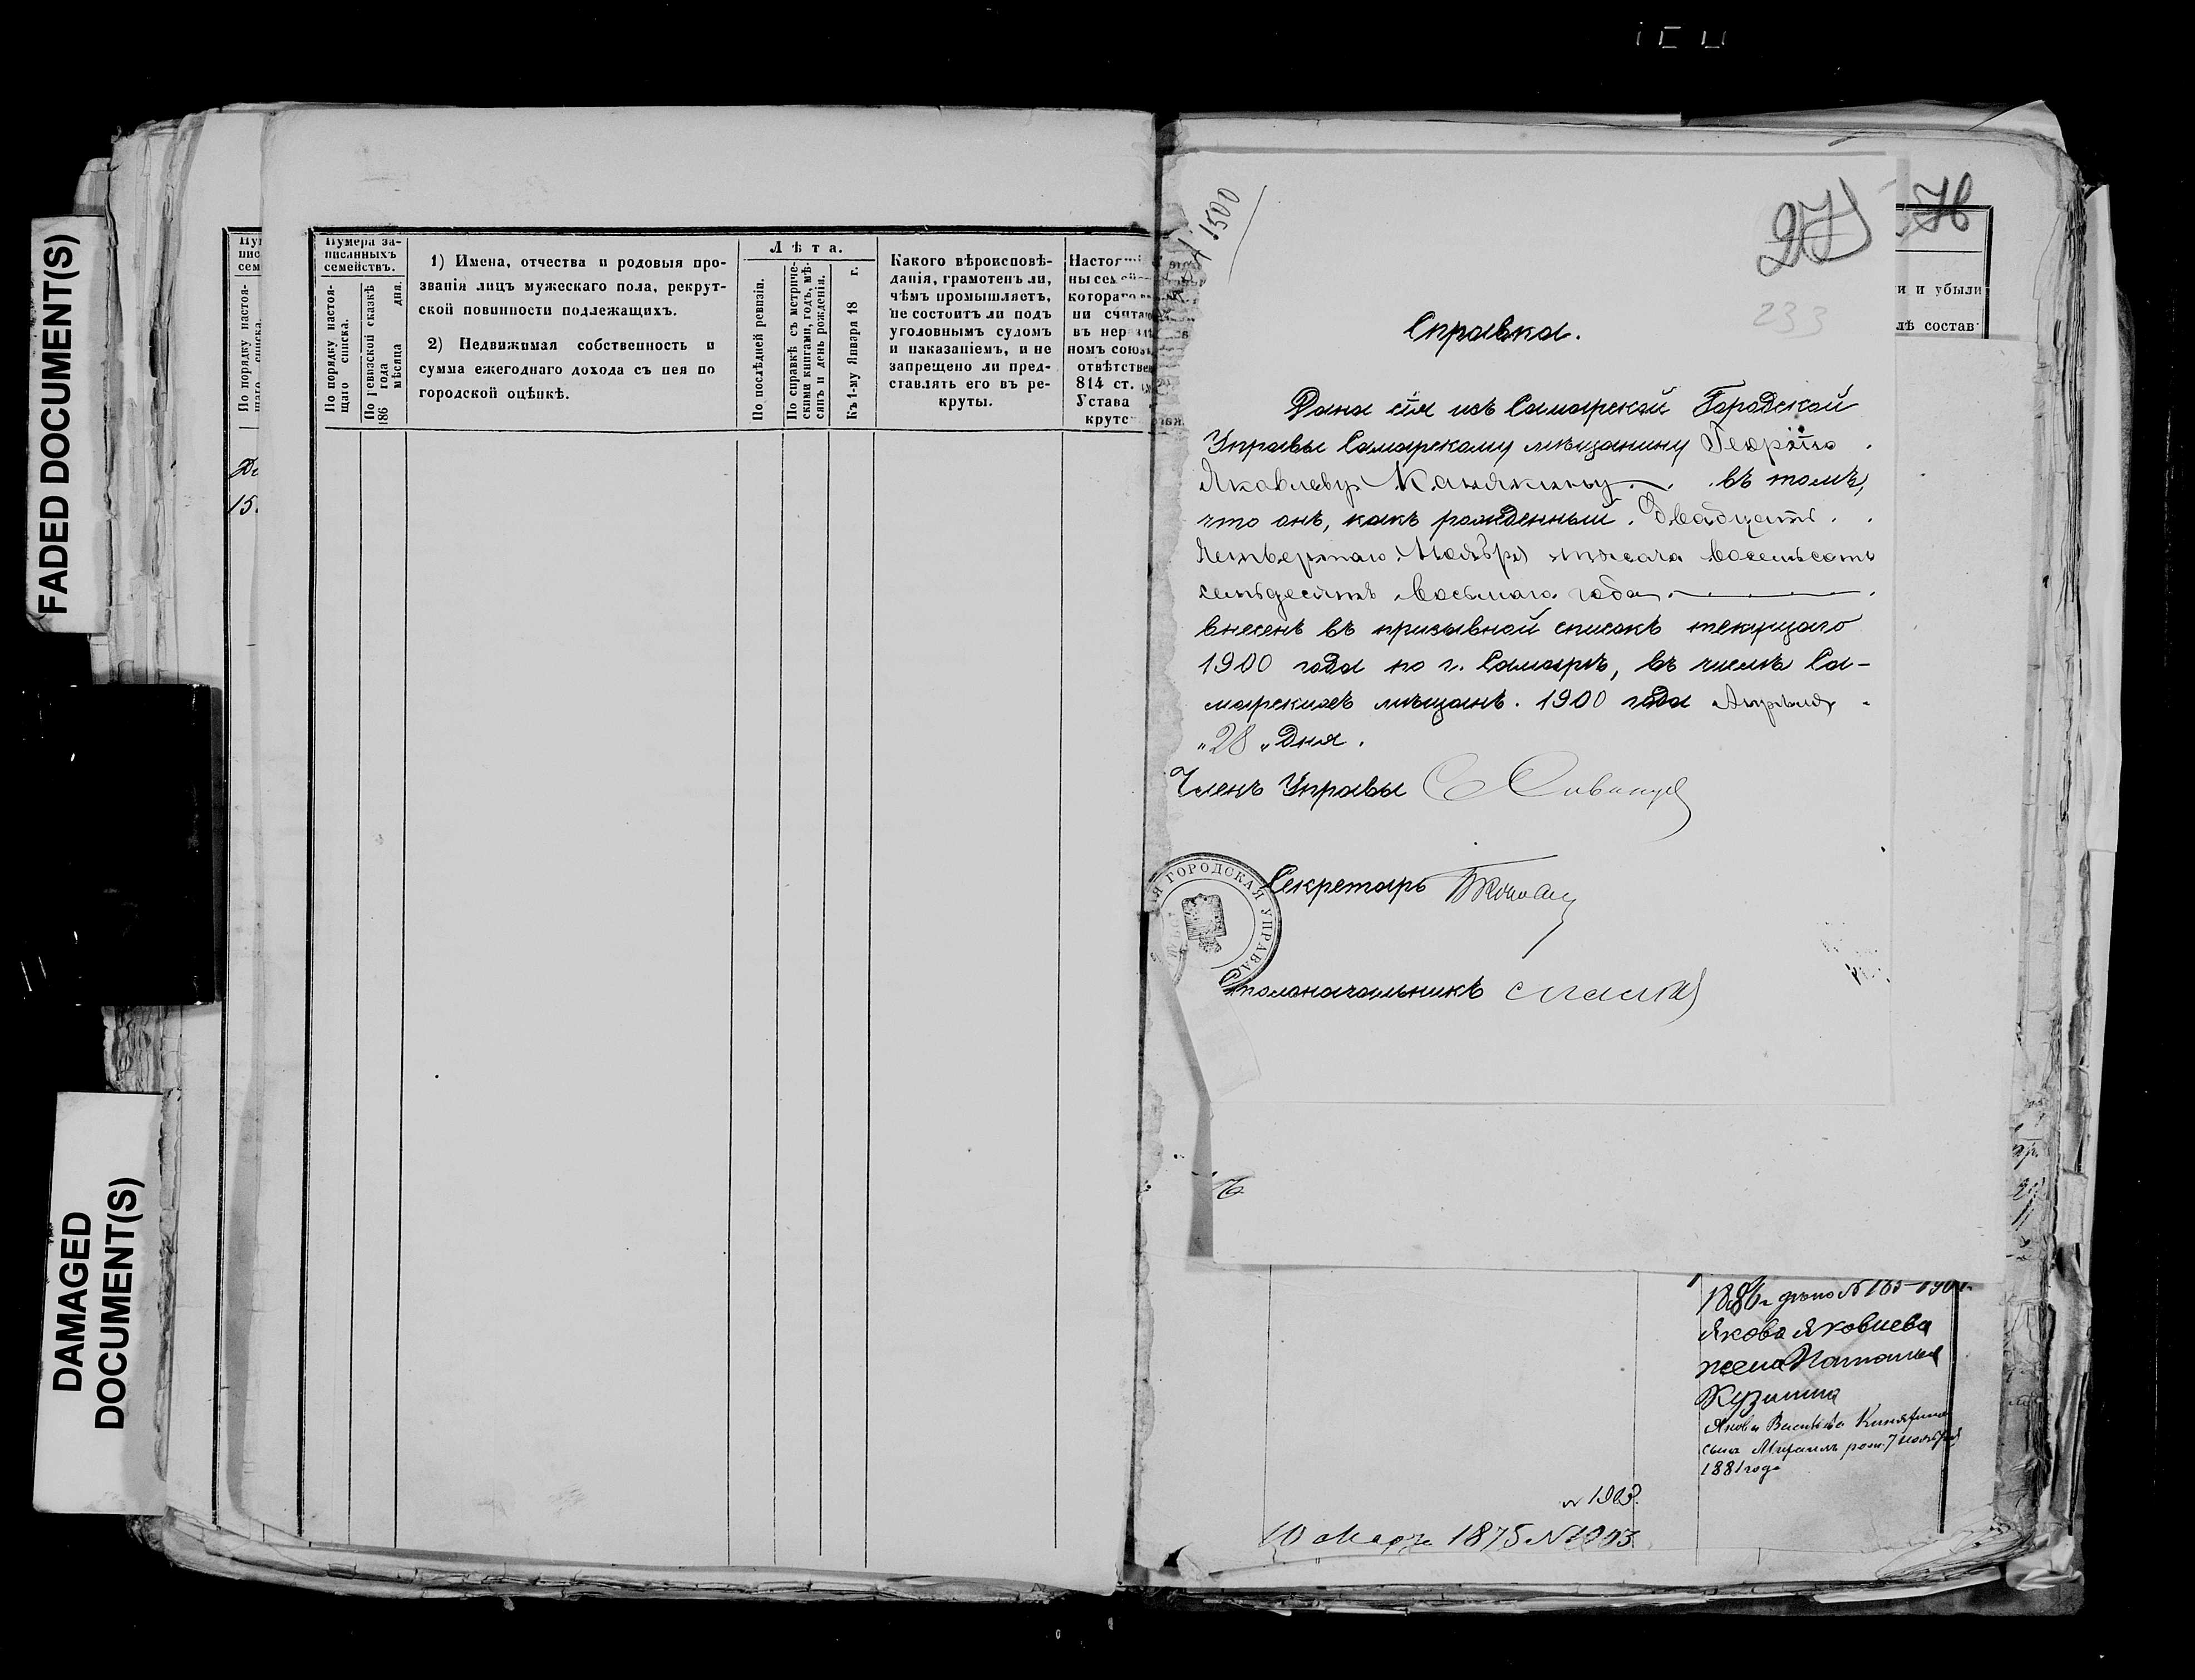 FADED DOCUMENT(S)
DAMAGED
DOCUMENT(S)
Нумера за-
писанныхъ
семействъ.
По порядку настоя-
щаго списка.
По ревизской сказкѣ
186 года мѣсяца дня.
1) Имена, отчества и родовыя про-
званія лицъ мужескаго пола, рекрут-
ской повинности подлежащихъ.
2) Недвижимая собственность и
сумма ежегоднаго дохода съ нея по
городской оцѣнкѣ.
Лѣта.
По послѣдней ревизіи.
По справкѣ съ метриче-
скими книгами, годъ, мѣ-
сяцъ и день рожденія.
Къ 1-му Января 18 г.
Какого вѣроисповѣ-
данія, грамотенъ ли,
чѣмъ промышляетъ,
не состоитъ ли подъ
уголовнымъ судомъ
и наказаніемъ, и не
запрещено ли пред-
ставлять его въ ре-
круты.
814 ст.
Устава
15.
1500
233
и убыли
лѣ состав
Справка.
Дана сія изъ Самарской Городской
Управы Самарскому мѣщанину Георгію
Яковлеву Канякину въ томъ,
что онъ, какъ рожденный Двадцать
Четвертаго Ноября тысяча восемьсотъ
семьдесятъ восьмаго года
внесенъ въ призывной списокъ текущаго
1900 года по г. Самарѣ, въ числѣ Са-
марскихъ мѣщанъ. 1900 года Апрѣля
"28" дня.
Членъ Управы
Секретарь
ГОРОДСКАЯ УПРАВА
Столоначальникъ
1886 г дѣло № 165-190
Якова Яковлева
жена Наталья
Кузьмина
Якова Васильева
сынъ Михаилъ рож. 7 ноября
1881 года
№ 1903.
10 Мар 1875 № 1903